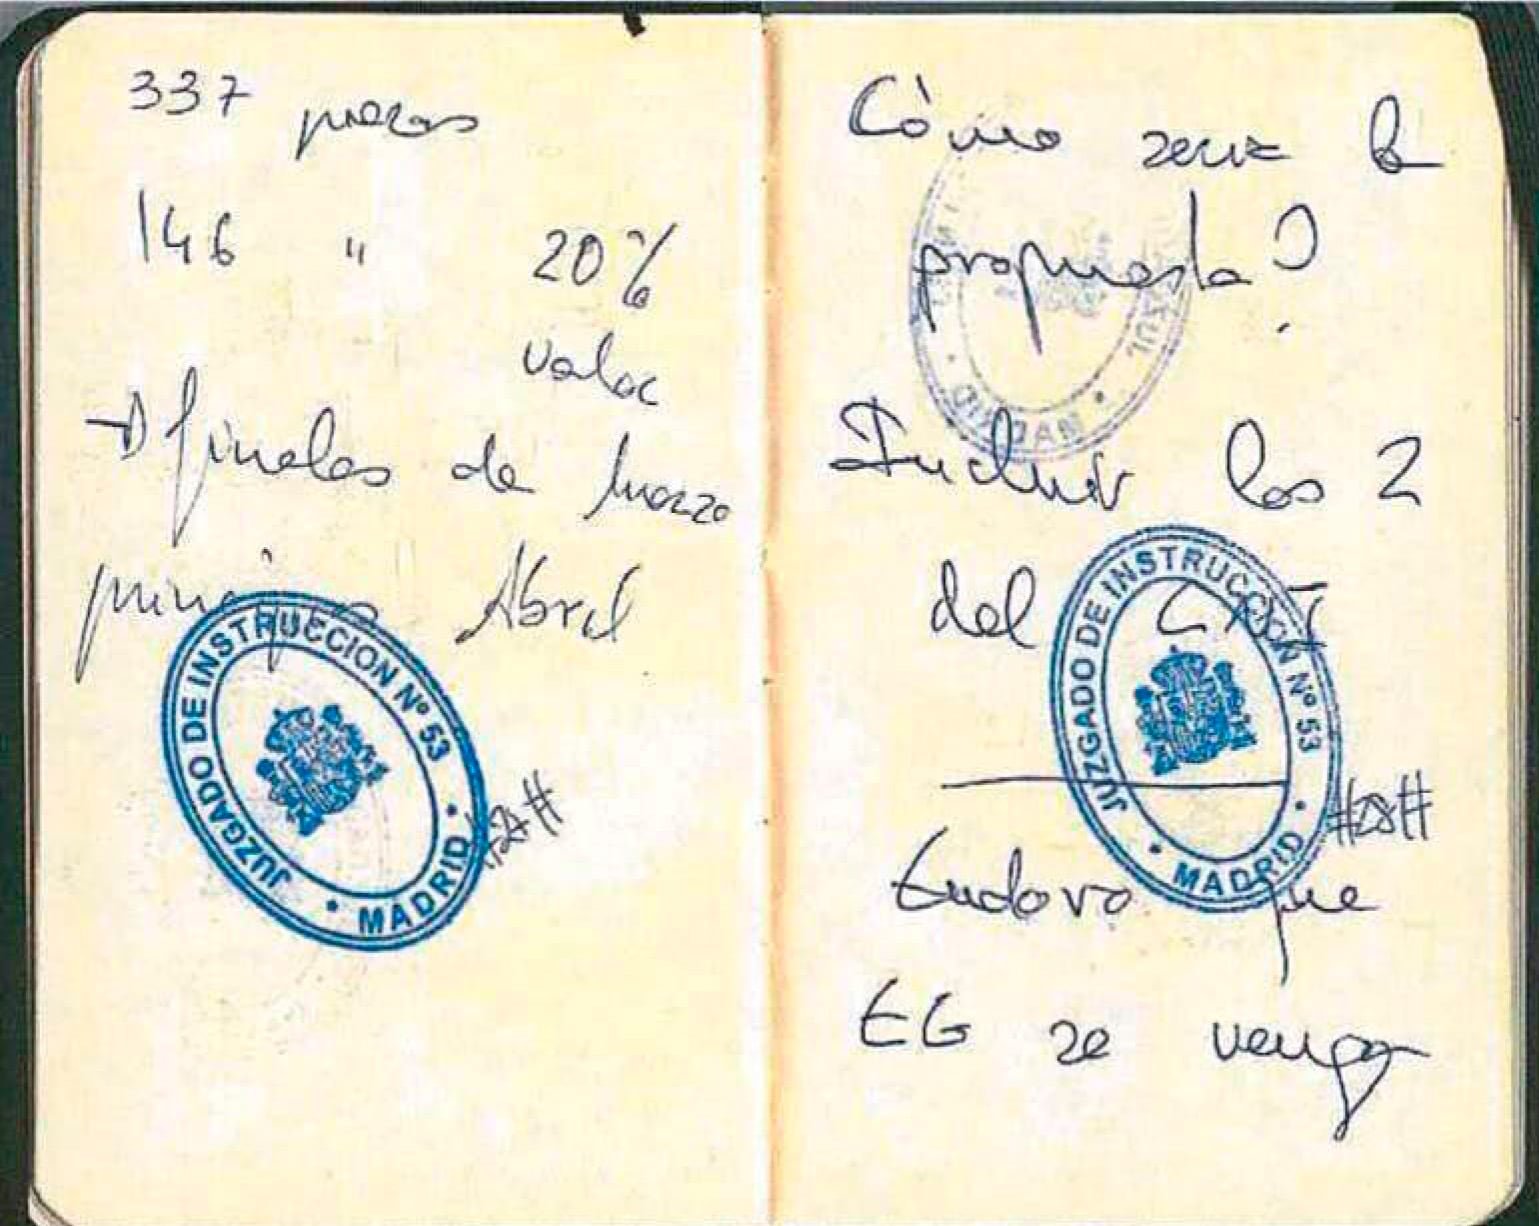 337 piezas
146 " 20%
valor
→ finales de marzo
principios Abril
JUZGADO DE INSTRUCCION Nº 53
• MADRID •
Cómo seria la
propuesta?
MADRID
Incluir los 2
del
JUZGADO DE INSTRUCCION Nº 53
• MADRID •
#28#
Eudoro que
EG se venga